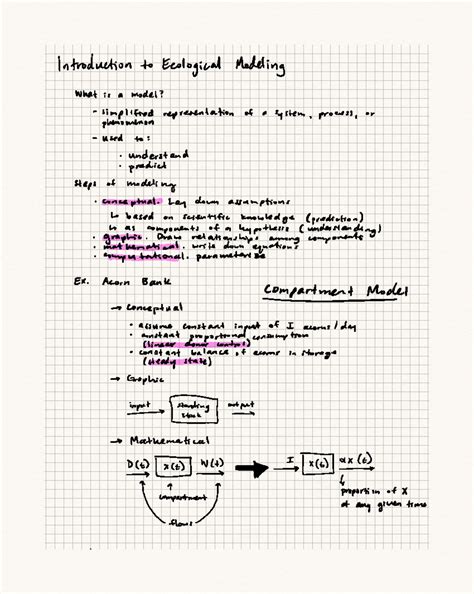 Introduction to Ecological Modeling
What is a model?
- simplified representation of a system, process, or
phenomenon
- used to:
• understand
• predict
Steps of modeling
• conceptual. Lay down assumptions
↳ based on scientific knowledge (prediction)
↳ as components of a hypothesis (understanding)
• graphic. Draw relationships among components
• mathematical. write down equations
• computational. parameterize
Ex. Acorn Bank
Compartment Model
→ Conceptual
• assume constant input of I acorns/day
• constant proportional consumption
(linear donor control)
• constant balance of acorns in storage
(steady state)
→ Graphic
input → standing stock → output →
→ Mathematical
D(t) → x(t) W(t) → I → x(t) αx(t) →
compartment
flows
proportion of X
at any given time